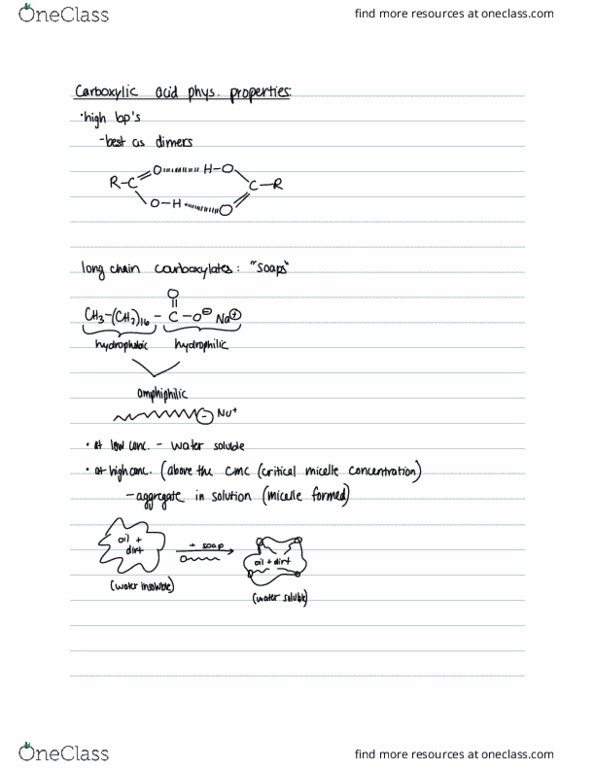 OneClass
find more resources at oneclass.com
Carboxylic acid phys. properties:
• high bp's
- best as dimers
R-C O H-O C-R
O-H O
long chain carboxylates: "soaps"
O
CH3-(CH2)16 - C - O⊖ Na⊕
hydrophobic hydrophilic
amphiphilic
- Na+
• at low conc. - water soluble
• at high conc. (above the cmc (critical micelle concentration)
- aggregate in solution (micelle formed)
oil + dirt
+ soap
oil + dirt
(water insoluble)
(water soluble)
OneClass
find more resources at oneclass.com